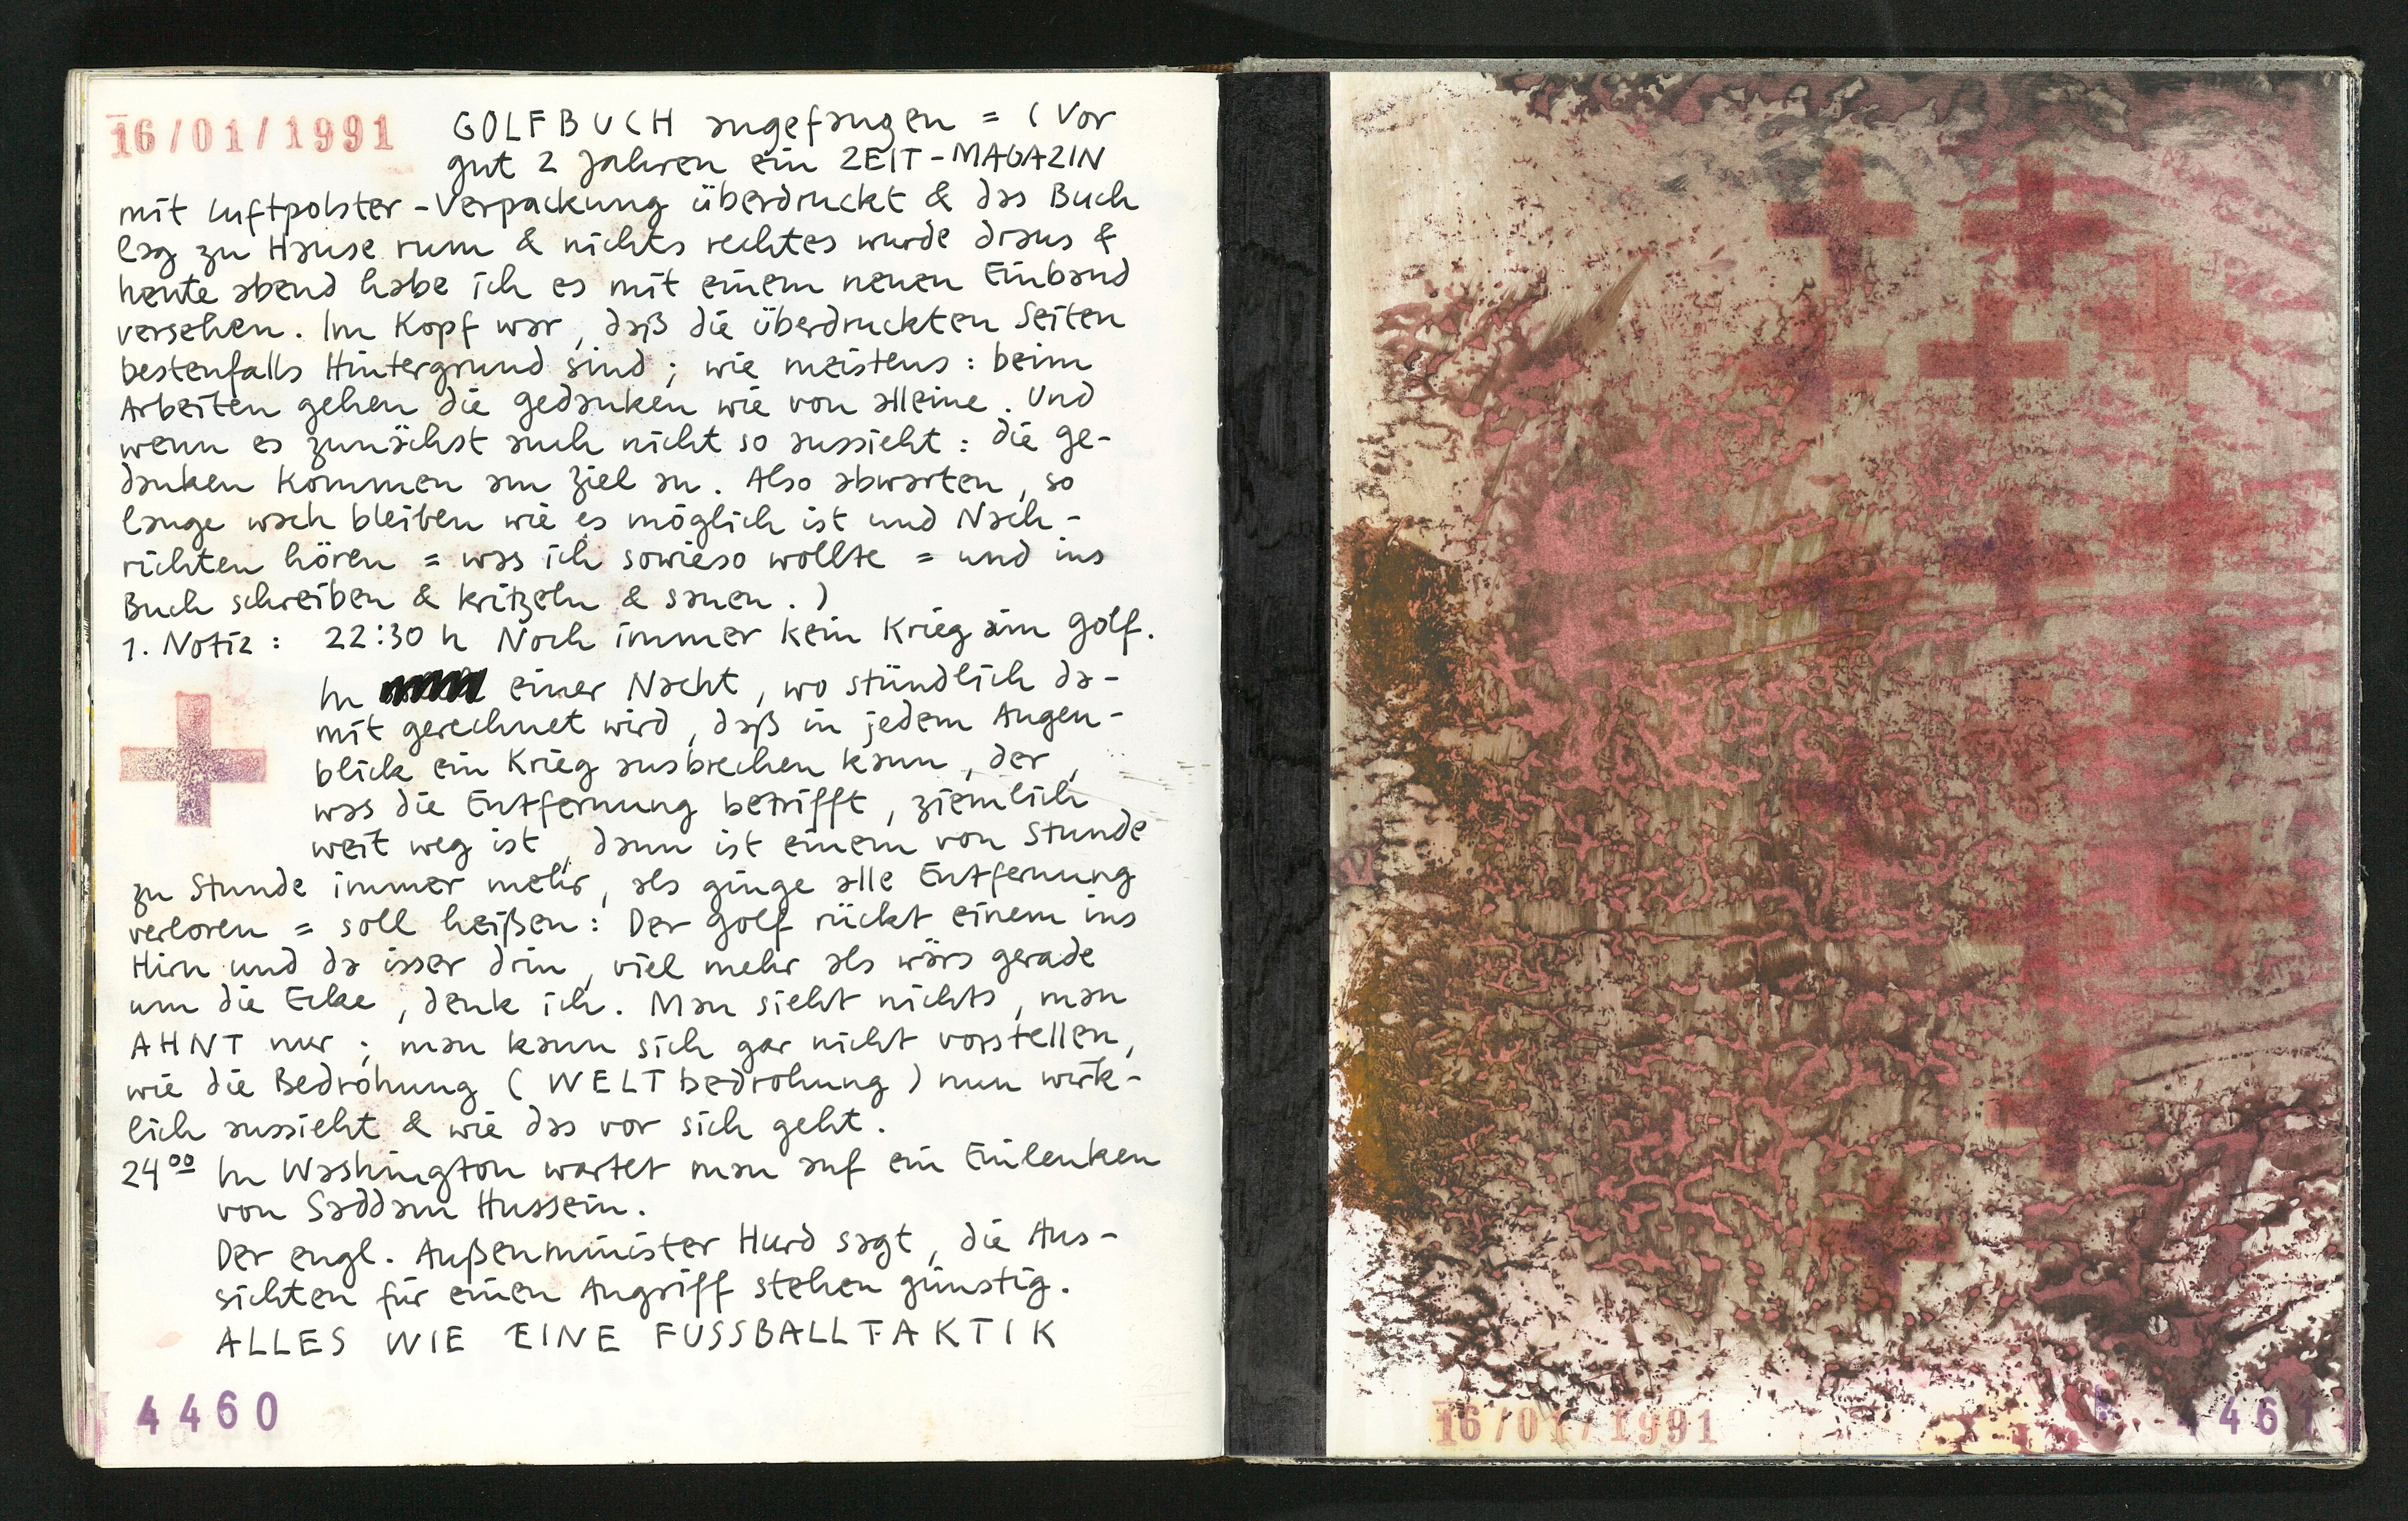 16/01/1991
GOLFBUCH angefangen = (Vor
gut 2 Jahren ein ZEIT-MAGAZIN
mit Luftpolster-Verpackung überdruckt & das Buch
lag zu Hause rum & nichts rechtes wurde draus &
heute abend habe ich es mit einem neuen Einband
versehen. Im Kopf war, daß die überdruckten Seiten
bestenfalls Hintergrund sind; wie meistens: beim
Arbeiten gehen die gedanken wie von alleine. Und
wenn es zunächst auch nicht so aussieht: die ge-
danken kommen am Ziel an. Also abwarten, so
lange wach bleiben wie es möglich ist und Nach-
richten hören = was ich sowieso wollte = und ins
Buch schreiben & kritzeln & sauen.)
1. Notiz: 22:30 h Noch immer kein Krieg am golf.
In einer Nacht, wo stündlich da-
mit gerechnet wird, daß in jedem Augen-
blick ein Krieg ausbrechen kann, der,
was die Entfernung betrifft, ziemlich
weit weg ist, dann ist einem von Stunde
zu Stunde immer mehr, als ginge alle Entfernung
verloren = soll heißen: Der golf rückt einem ins
Hirn und da isser drin, viel mehr als wärs gerade
um die Ecke, denk ich. Man sieht nichts, man
AHNT nur; man kann sich gar nicht vorstellen,
wie die Bedrohung (WELTbedrohung) nun wirk-
lich aussieht & wie das vor sich geht.
24⁰⁰ In Washington wartet man auf ein Einlenken
von Saddam Hussein.
Der engl. Außenminister Hurd sagt, die Aus-
sichten für einen Angriff stehen günstig.
ALLES WIE EINE FUSSBALLTAKTIK
4460
16/01/1991
4461